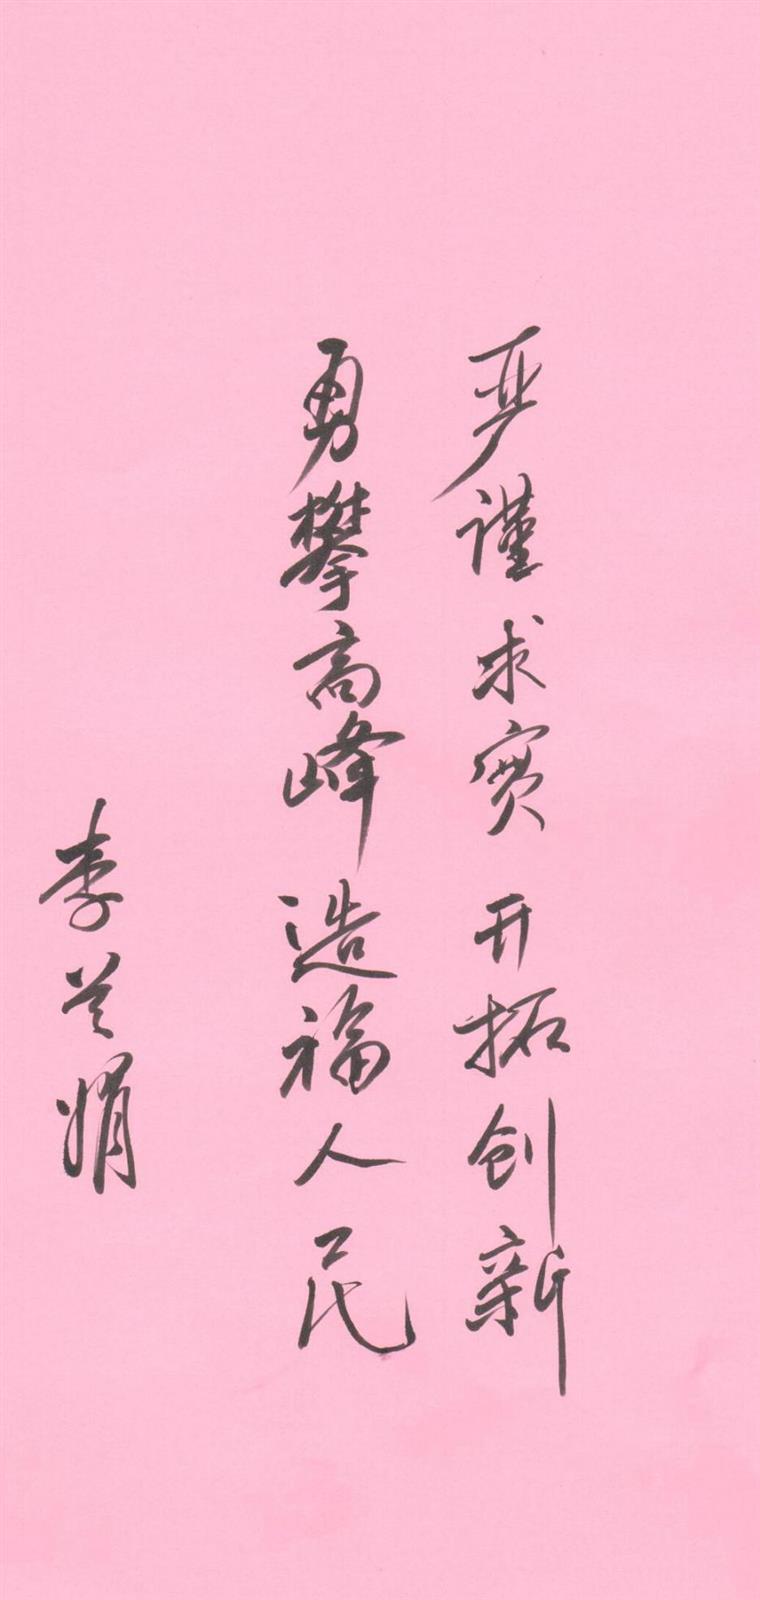 严谨求实 开拓创新
勇攀高峰造福人民
李兰娟